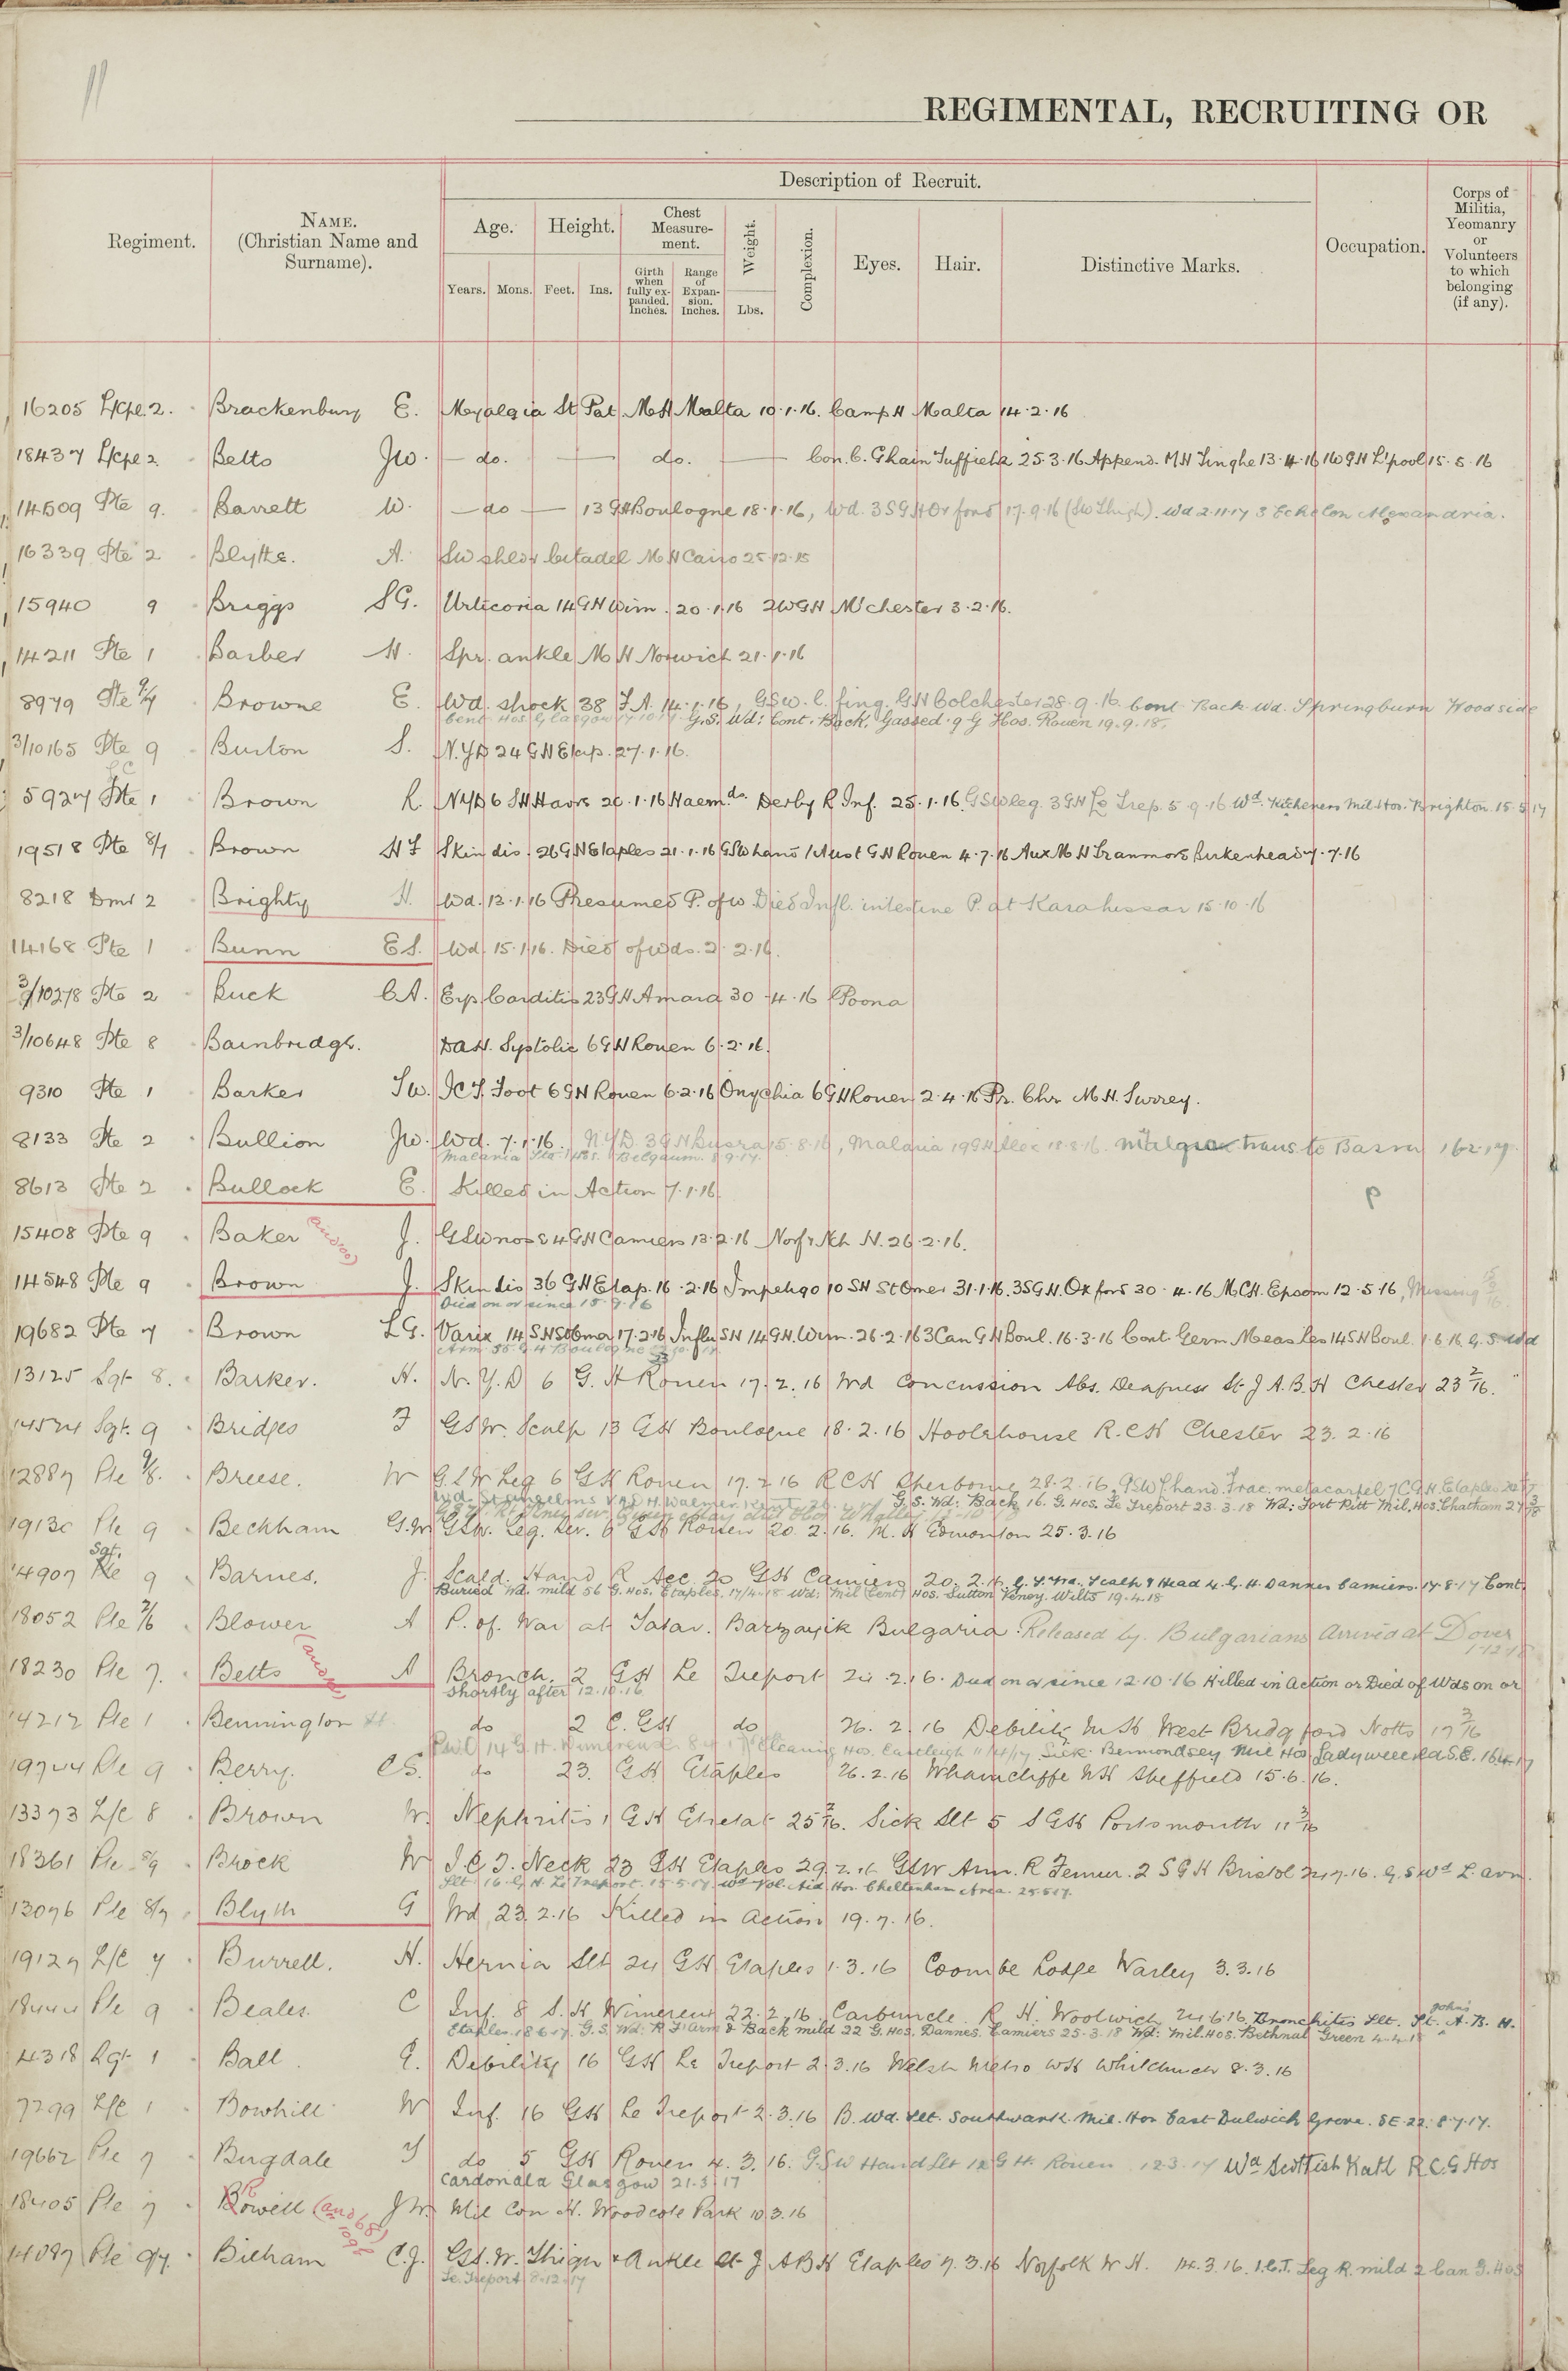 11
REGIMENTAL, RECRUITING OR
Description of Recruit.
Regiment.
NAME.
(Christian Name and
Surname).
Age.
Height.
Chest
Measure-
ment.
Weight.
Complexion.
Eyes.
Hair.
Distinctive Marks.
Occupation.
Corps of
Militia,
Yeomanry
or
Volunteers
to which
belonging
(if any).
Years.
Mons.
Feet.
Ins.
Girth
when
fully ex-
panded.
Inches.
Range
of
Expan-
sion.
Inches.
Lbs.
16205 L/Cpl. 2. Brackenbury E. Myalgia St Pat. M H Malta 10.1.16. Camp H Malta 14.2.16
18437 L/Cpl 2. Betts JW. — do. — do. — Con. C. Ghain Tuffieha 25.3.16 Append. M H Tinghe 13.4.16 1W G H L'pool 15.5.16
14509 Pte 9. Barrett W. — do — 13 GH Boulogne 18.1.16, Wd. 3SGH Oxford 17.9.16 (SW Thigh). Wd 2.11.17 3 Echelon Alexandria.
16339 Pte 2 Blythe. A. SW shldr Citadel M H Cairo 25.12.15
15940 9 Briggs SG. Urticaria 14 G H Wim. 20.1.16 2W G H M'chester 3.2.16.
14211 Pte 1 Barber H. Spr. ankle M H Norwich 21.1.16
8979 Pte 9/7 Browne E. Wd. shock 38 F.A. 14.1.16, GSW. l. fing. GH Colchester 28.9.16. Cont. Back Wd. Springburn Woodside
Cent. Hos. Glasgow 17.10.17. G.S. Wd: Cont. Back. Gassed. 9 G Hos. Rouen 19.9.18.
3/10165 Pte 9 Burton S. N.Y.D 24 G H Etap. 27.1.16.
5927 Pte 1 Brown R. NYD 6 SH Havre 20.1.16 Haem.ds Derby R Inf. 25.1.16. GSW leg. 3 GH Le Trep. 5.9.16 Wd. Kitcheners Mil Hos. Brighton. 15.5.17
19518 Pte 8/7 Brown HF Skin dis. 26 G H Etaples 21.1.16 GSW hand 1 Aust G H Rouen 4.7.16 Aux M H Tranmore Birkenhead 7.7.16
8218 Dmr 2 Brighty H. Wd. 13.1.16 Presumed P. of W Died Infl. intestine P. at Karahissar 15.10.16
14168 Pte 1 Bunn ES. Wd. 15.1.16. Died of wds. 2.2.16.
3/10278 Pte 2 Buck CA. Exp Carditis 23 G H Amara 30.4.16 Poona
3/10648 Pte 8 Bainbridge. DAH. Systolic 6 G H Rouen 6.2.16.
9310 Pte 1 Barker TW. ICT. Foot 6 G H Rouen 6.2.16 Onychia 6 G H Rouen 2.4.16 Pr. Chr M H. Surrey.
8133 Pte 2 Bullion JW. Wd. 7.1.16. NYD. 3 G H Busra 15.8.16, Malaria 19 G H Alex 18.8.16. trans to Basra 16.2.17.
Malaria Sta. Hos. Belgaum. 8.9.17.
8613 Pte 2 Bullock E. Killed in Action 7.1.16. P
15408 Pte 9 Baker J. GSW nose 4 G H Camiers 13.2.16 Norf & Nch H. 26.2.16.
14548 Pte 9 Brown J. Skin dis 36 G H Etap. 16.2.16 Impetigo 10 SH St Omer 31.1.16. 3SG H. Oxford 30.4.16 M.C.H. Epsom 12.5.16, Missing 15/9/16
Died on or since 15.9.16
19682 Pte 7 Brown LG. Varix 14 SH St Omer 17.2.16 Influ SH 14 G H. Wim. 26.2.16 3 Can G H Boul. 16.3.16 Cont. Germ. Measles 14 SH Boul. 1.6.16. G.S. Wd
13125 Sgt 8. Barker. H. N.Y.D 6 G. H Rouen 17.2.16 Wd Concussion Abs. Deafness St J A.B.H Chester 23 2/16.
14574 Sgt. 9 Bridges F GSW. Scalp 13 GH Boulogne 18.2.16 Hoole house R.C.H Chester 23.2.16
12887 Pte 9/8. Breese. W G.S.W Leg 6 GH Rouen 17.2.16 RCH Sherborne 28.2.16, GSW l hand. Frac. metacarpel 7 C G H. Etaples
G.S. Wd: Back 16. G. Hos. Le Treport 23.3.18 Wd: Fort Pitt Mil. Hos. Chatham 27 3/18
19130 Pte 9 Beckham G.W. GSW. Leg. Sev. 6 GH Rouen 20.2.16. M. H Edmonton 25.3.16
14907 Sgt. 9 Barnes. J. Scald. Hand R Acc 20 GH Camiers 20.2.16. G.S. Wd. Scalp & Head 4. G. H. Dannes Camiers. 17.8.17 Cont.
Buried Wd. mild 56 G. Hos. Etaples. 17/4.18 Wd: Mil (Cent) Hos. Sutton Veney. Wilts 19.4.18
18052 Pte 7/6 Blower A P. of. War at Tatar. Barzayik Bulgaria. Released by Bulgarians Arrived at Dover
1-12-18
18230 Pte 7. Betts A Bronch. 2 GH Le Treport 24.2.16. Died on or since 12.10.16 Killed in Action or Died of Wds on or
shortly after 12.10.16
14212 Pte 1 Bennington H. do 2 C. GH do 26.2.16 Debility M H West Bridgford Notts 17 3/16
19744 Pte 9 Berry. CS. do 23. GH Etaples 26.2.16 Wharncliffe W H Sheffield 15.6.16.
Clearing Hos. Eastleigh 11/4/17 Sick. Bermondsey Mil Hos Ladywell Rd S.E. 16.4.17
13373 L/C 8 Brown W. Nephritis 1 GH Etretat 25 2/16. Sick Slt 5 S GH Portsmouth 11 3/16
18361 Pte 8/9 Brock W I.C.T. Neck 23 GH Etaples 29.2.16 GSW Arm. R Femur. 2 S G H Bristol 24.7.16. G. S Wd L. arm.
Slt 16. G. H. Le Treport. 15.5.17. Wd Vol. Aid. Hos. Cheltenham Area. 25.5.17.
13076 Pte 8/7 Blyth G Wd 23.2.16 Killed in Action 19.7.16.
19127 L/C 7 Burrell. H. Hernia Slt 24 GH Etaples 1.3.16 Coombe Lodge Warley 3.3.16
18444 Pte 9 Beales. C Inf. 8 S.H Wimereux 22.2.16 Carbuncle R H. Woolwich 24.6.16 Bronchitis Slt. St. John's A. B. H.
Etaples. 18.6.17. G.S. Wd: R F'arm & Back mild 22 G. Hos. Dannes. Camiers 25.3.18 Wd: Mil. Hos. Bethnal Green 4.4.18
4318 Sgt 1 Ball E. Debility 16 GH Le Treport 2.3.16 Welsh Metro WH Whitchurch 8.3.16
7299 L/C 1 Bowhill W Inf. 16 GH Le Treport 2.3.16 B. Wd. Slt. Southwark. Mil. Hos East Dulwich Grove. SE.22. 8.7.17.
19662 Pte 7 Bugdale T do 5 GH Rouen 4.3.16. GSW Hand Slt 12 G H. Rouen 12.3.17 Wd Scottish Natl R C G Hos
Cardonald Glasgow 21.3.17
18405 Pte 7 Bowell J W. Mil Con H. Woodcote Park 10.3.16
14087 Pte 9/7. Bilham C.J. GS.W. Thigh & Ankle St J A B H Etaples 7.3.16 Norfolk W H. 14.3.16. I.C.T. Leg R. mild 2 Can G. Hos
Le. Treport 8.12.17